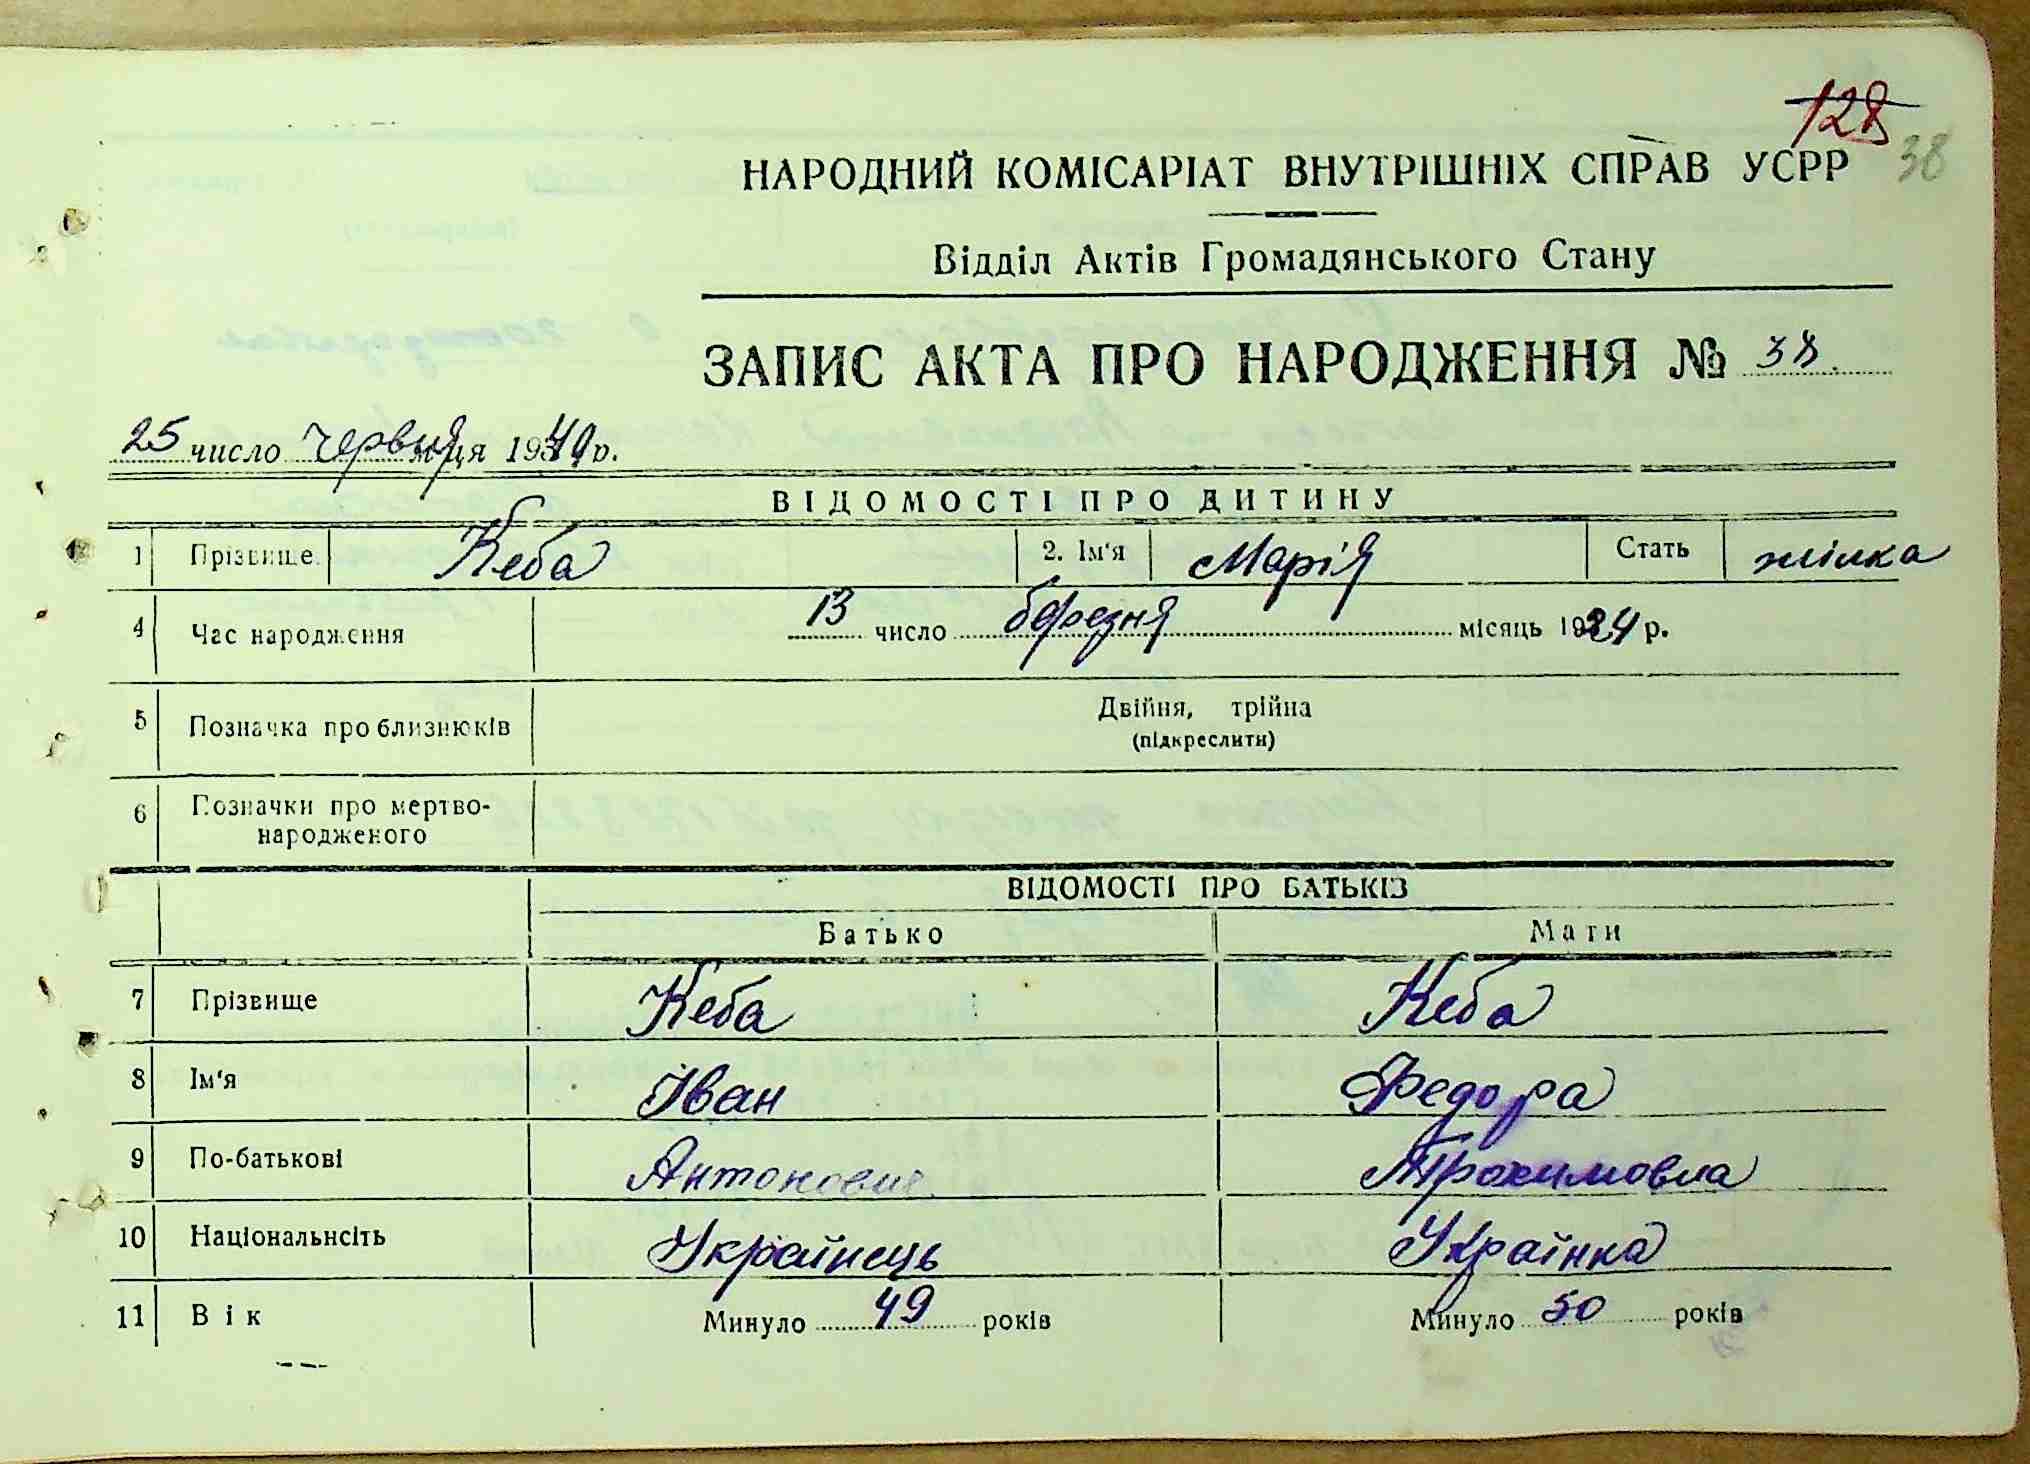 128
38
НАРОДНИЙ КОМІСАРІАТ ВНУТРІШНІХ СПРАВ УСРР
Відділ Актів Громадянського Стану
ЗАПИС АКТА ПРО НАРОДЖЕННЯ № 38.
25 число червня м-ця 1940 р.
ВІДОМОСТІ ПРО ДИТИНУ
1 Прізвище Кеба 2. Ім'я Марія Стать жінка
4 Час народження 13 число березня місяць 1924 р.
5 Позначка про близнюків Двійня, трійна
(підкреслити)
6 Позначки про мертво-
народженого
ВІДОМОСТІ ПРО БАТЬКІВ
Батько Мати
7 Прізвище Кеба Кеба
8 Ім'я Іван Федора
9 По-батькові Антонович Трохимовна
10 Національнсіть Українець Українка
11 Вік Минуло 49 років Минуло 50 років